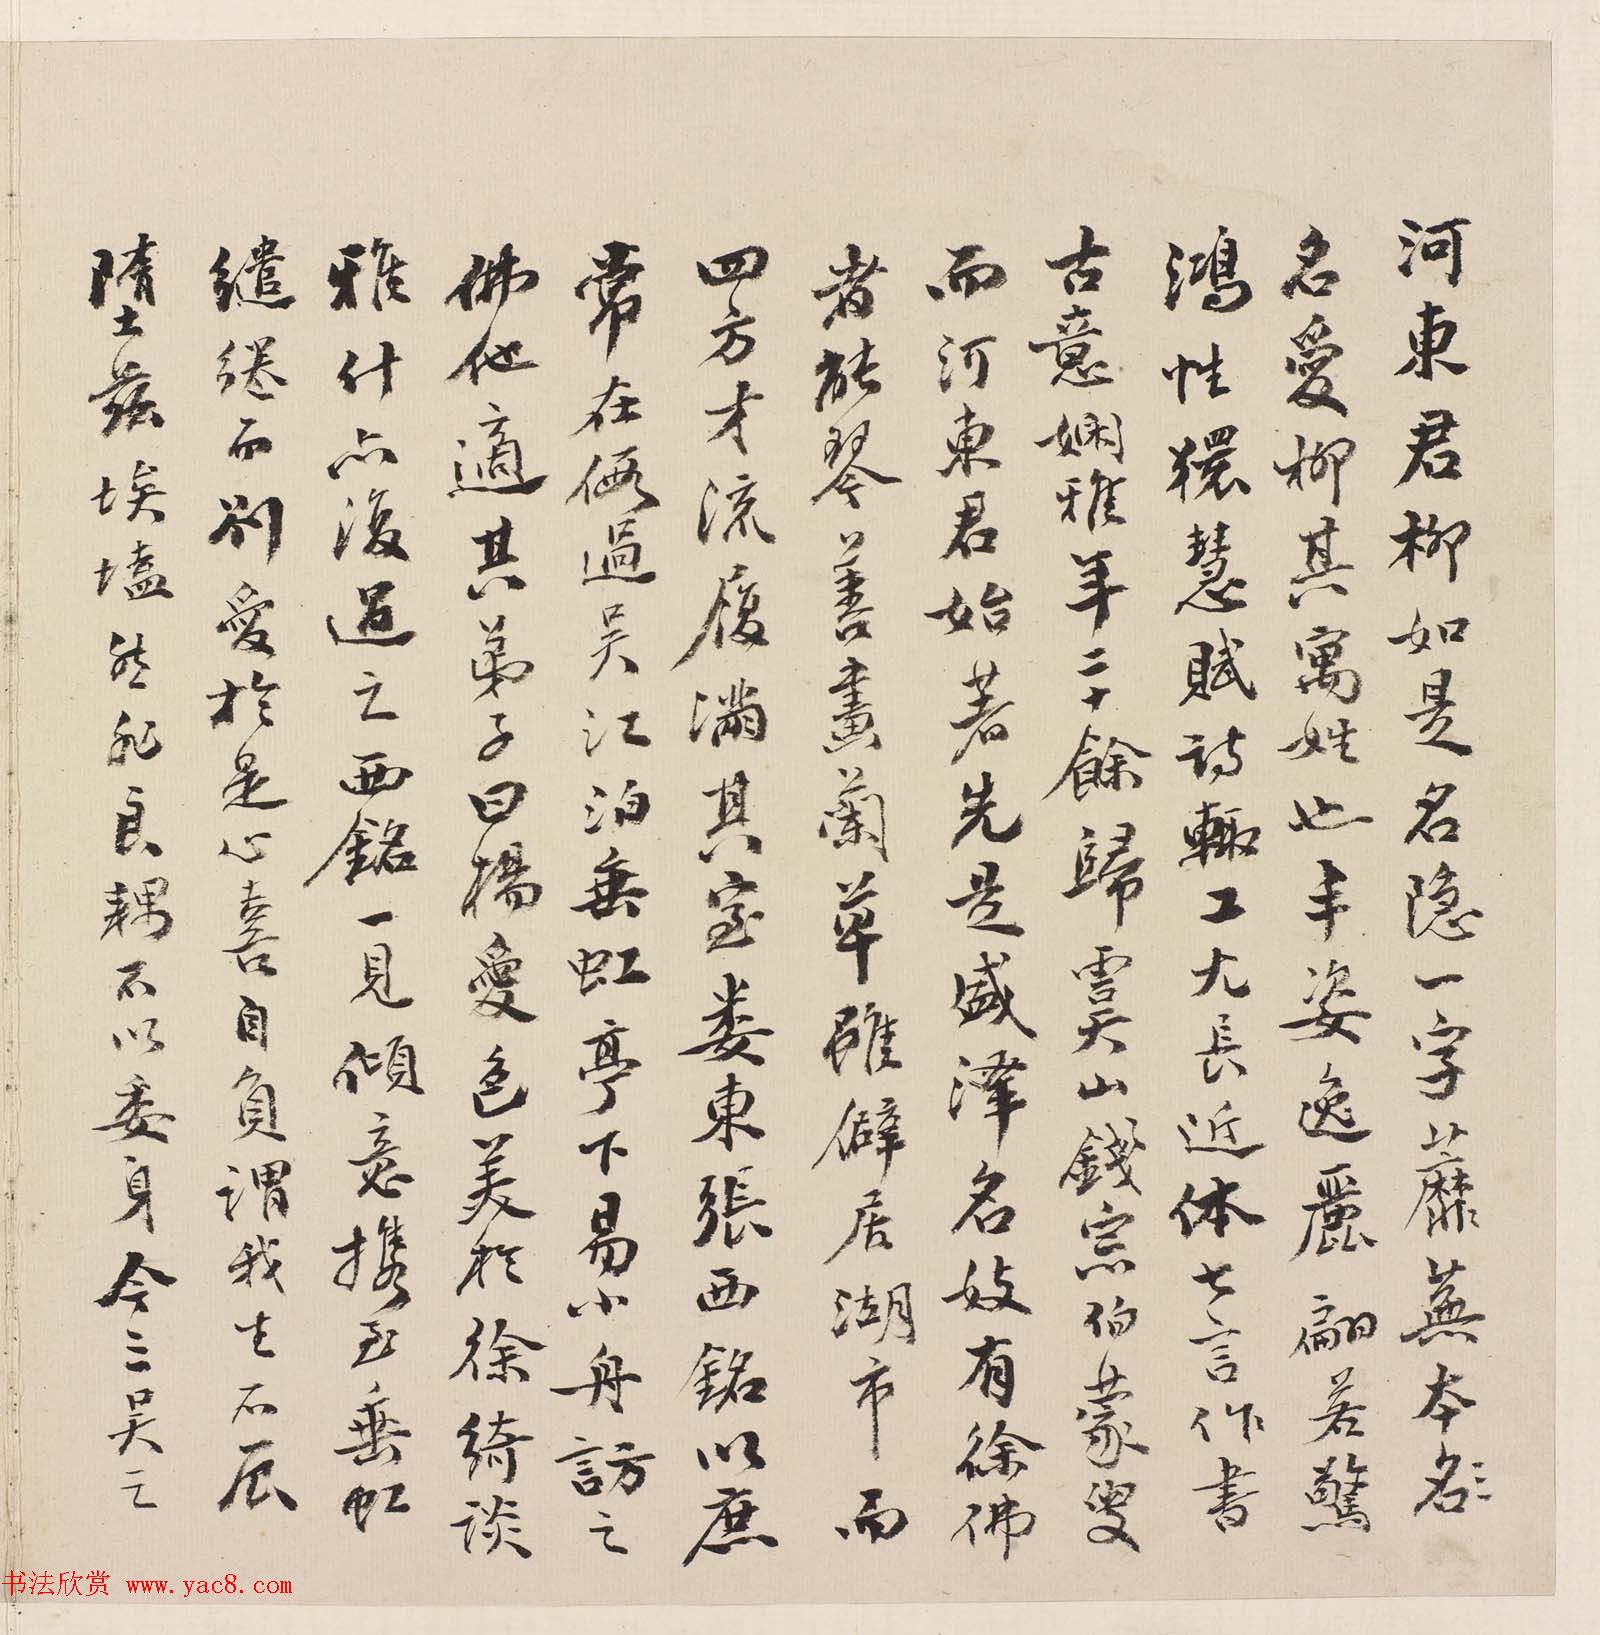 河東君柳如是名隱一字蘼蕪本名〻
名愛柳其寓姓也丰姿逸麗翩若驚
鴻性獧慧賦詩輙工尤長近体七言作書
古意嫻雅年二十餘歸雲山錢宗伯蒙叟
而河東君始著先是盛澤名妓有徐佛
者能琴善畫蘭草雖僻居湖市而
四方才流履滿其室婁東張西銘以庶
常在假過吳江泊垂虹亭下易小舟訪之
佛他適其弟子曰楊愛色美於徐綺談
雅什亦復過之西銘一見傾意携至垂虹
繾綣而別愛於是心喜自負謂我生不辰
墮茲埃壒然非良耦不以委身今三吳之
书法欣赏 www.yac8.com